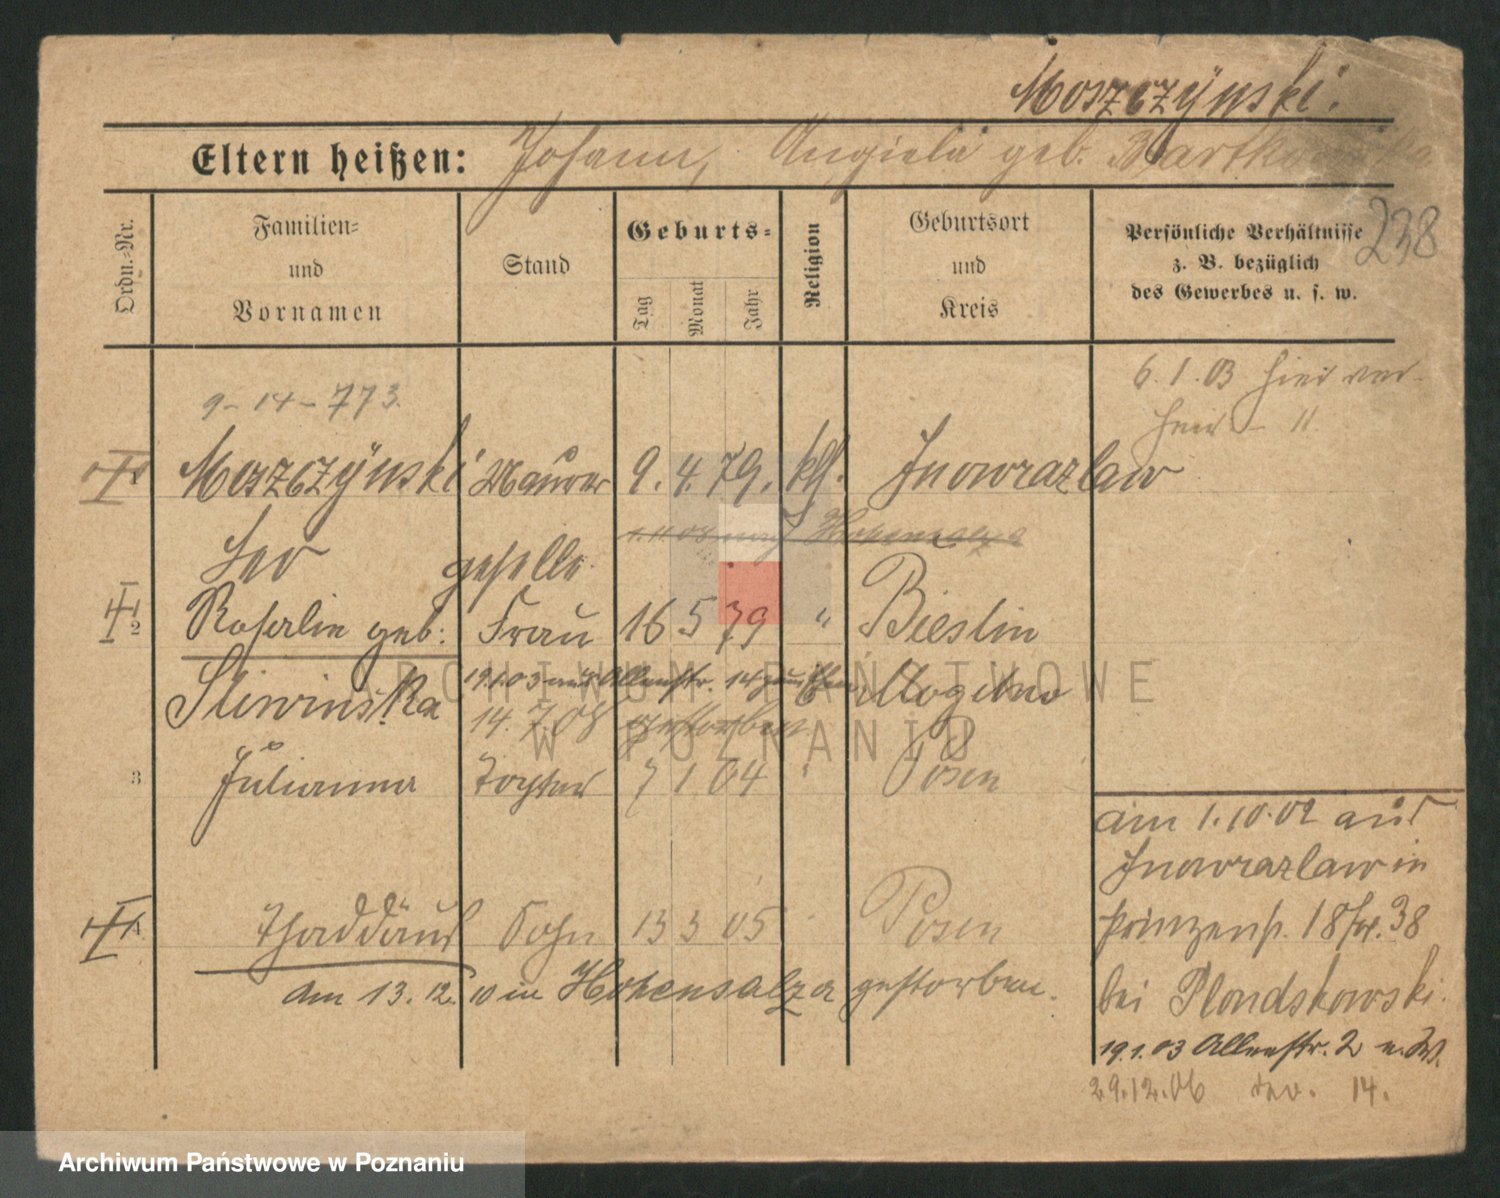 Moszczÿnski.
Eltern heißen: Johann, Angiela geb.
238
Ordn.-Nr.
Familien-
und
Vornamen
Stand
Geburts-
Tag
Monat
Jahr
Religion
Geburtsort
und
Kreis
Persönliche Verhältnisse
z. B. bezüglich
des Gewerbes u. s. w.
6. 1. 03 hier ver-
9-14-773.
Moszczÿnski Maurer 9. 4. 79. kth. Inowrazlaw
Leo geselle.
2 Rosalie geb: Frau 16 5 79 " Bieslin
Sliwinska Mogilno
19.1.03 aus Allenstr. 14
14. 7. 08 gestorben
3 Julianna Tochter 7 1 04 " Posen
Thaddäus Sohn 13 3 05 Posen
am 13. 12. 10 in Hohensalza gestorben.
am 1. 10. 02 aus
Inowrazlaw in
Prinzenstr. 18 Fr. 38
bei Plondskowski.
19.1.03 Allenstr. 2 u. W.
29.12.06 14.
ARCHIWUM PAŃSTWOWE
W POZNANIU
Archiwum Państwowe w Poznaniu